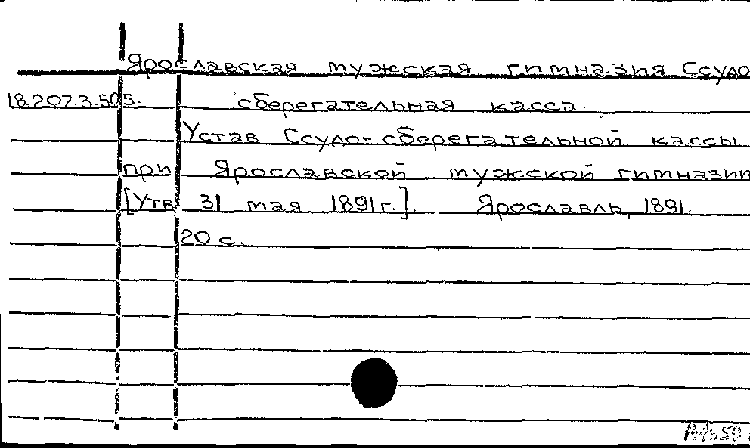 Ярославская мужская гимназия Ссудо
18.207.3.505. сберегательная касса
Устав Ссудо-сберегательной кассы
при Ярославской мужской гимназии
[Утв. 31 мая 1891г.]. Ярославль, 1891.
20 с.